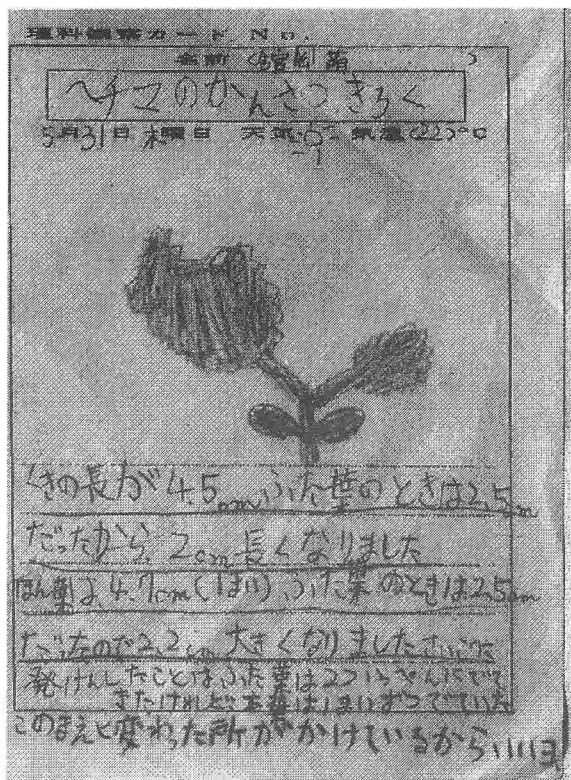 理科観察カード No.
名前(
ヘチマのかんさつきろく
5月31日 木曜日 天気 気温(22)°C
くきの長が4.5cmふた葉のときは2.5cm
だったから、2cm長くなりました
ほん葉は、4.7cm(1まい)ふた葉のときは2.5cm
だったので2.2cm大きくなりました
発けんしたことはふた葉は2ついっぺんにでて
きたけれど本葉は1まいずつでていた
このまえと変わった所がかけているからいいヨ